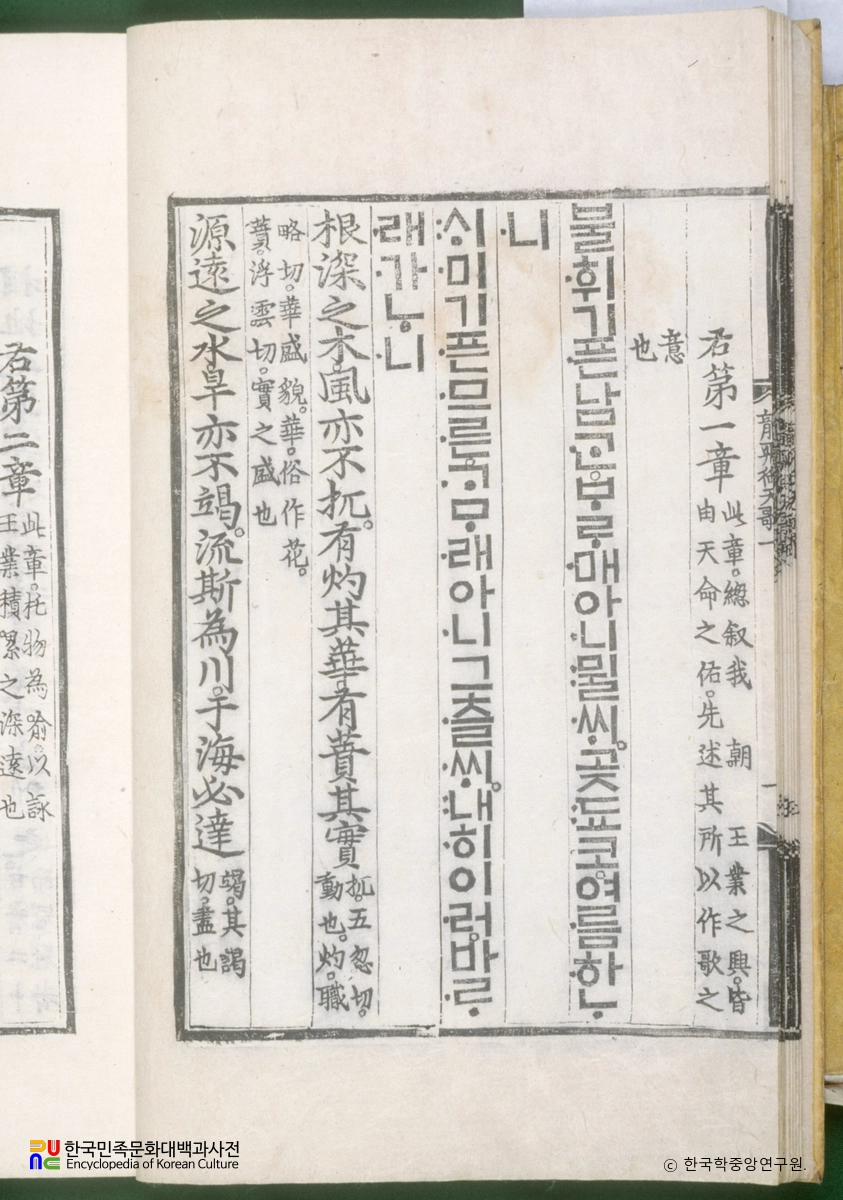 龍飛御天歌
右第一章
此章。總叙我 朝 王業之興。皆
由天命之佑。先述其所以作歌之
意
也
불휘기픈남ᄀᆞᆫᄇᆞᄅᆞ매아니뮐ᄊᆡ。곶됴코。여름하ᄂᆞ
니
ᄉᆡ미기픈므른ᄀᆞᄆᆞ래아니그츨ᄊᆡ。내히이러。바ᄅᆞ
래가ᄂᆞ니
根深之木。風亦不扤。有灼其華。有蕡其實
扤。五忽切。
動也。灼。職
略切。華盛貌。華。俗作花。
蕡。浮雲切。實之盛也
源遠之水。旱亦不竭。流斯為川。于海必達
竭。其謁
切。盡也
右第二章
此章。托物為喻。以詠
王業積累之深遠也
한국민족문화대백과사전
Encyclopedia of Korean Culture
© 한국학중앙연구원.